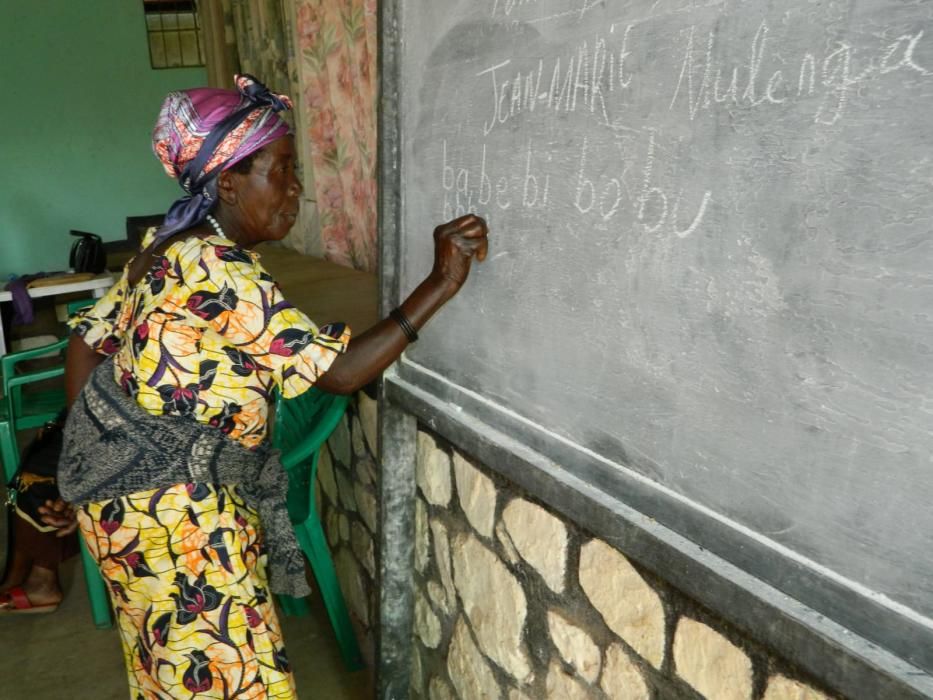 JEAN-MARIE Mulênga
ba be bi bo bu